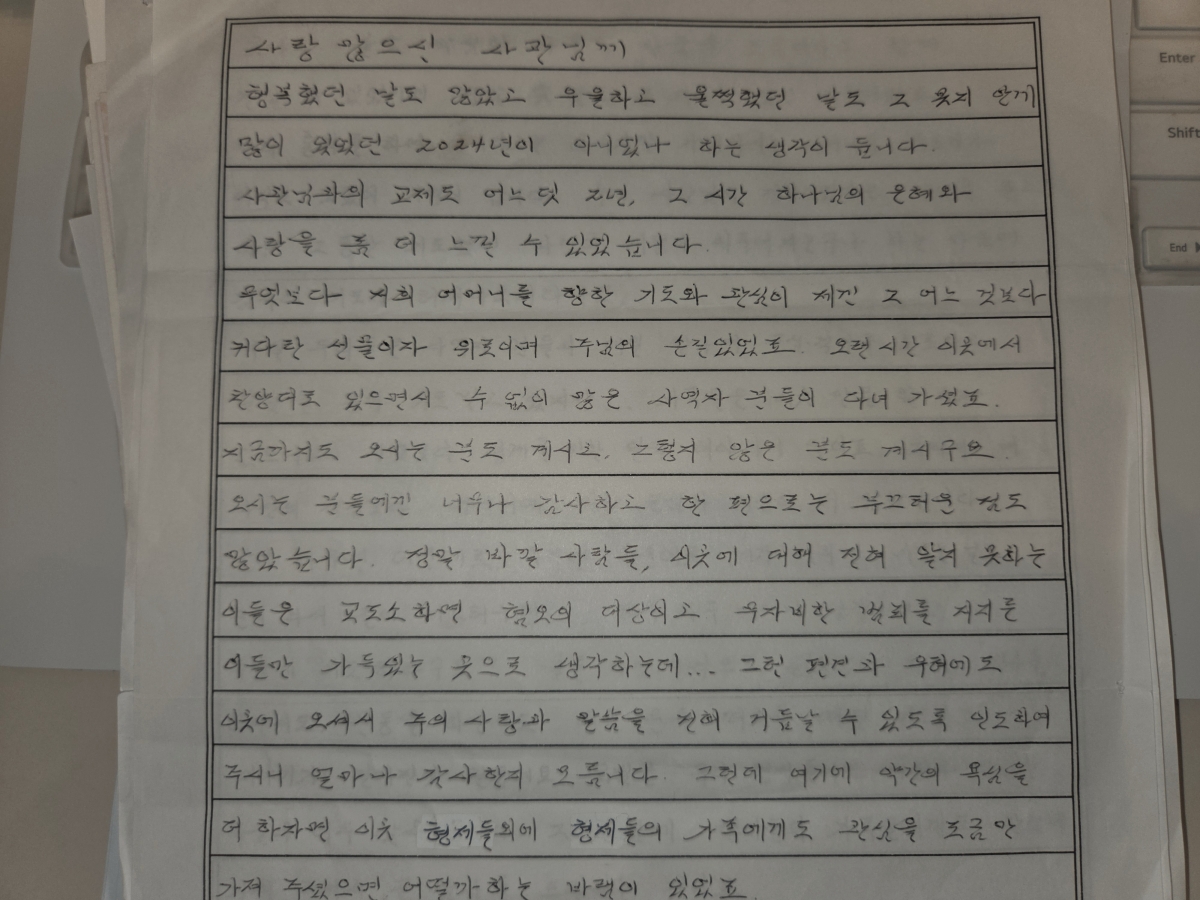 사랑 많으신 사관님께
행복했던 날도 많았고 우울하고 울쩍했던 날도 그 못지 안게
많이 있었던 2024년이 아니였나 하는 생각이 듭니다.
사관님과의 교제도 어느덧 2년, 그 시간 하나님의 은혜와
사랑을 좀 더 느낄 수 있었습니다.
무엇보다 저희 어머니를 향한 기도와 관심이 제겐 그 어느 것보다
커다란 선물이자 위로이며 주님의 손길이었었죠. 오랜시간 이곳에서
찬양대로 있으면서 수 없이 많은 사역자 분들이 다녀 가셨죠.
지금까지도 오시는 분도 계시죠, 그렇지 않은 분도 계시구요.
오시는 분들에겐 너무나 감사하고 한 편으로는 부끄러운 점도
많았습니다. 정말 바깥 사람들, 이곳에 대해 전혀 알지 못하는
이들은 교도소하면 혐오의 대상이고 무자비한 범죄를 저지른
이들만 가득있는 곳으로 생각하는데... 그런 편견과 우혀에도
이곳에 오셔서 주의 사랑과 말씀을 전해 거듭날 수 있도록 인도하여
주시니 얼마나 감사한지 모릅니다. 그런데 여기에 약간의 욕심을
더 하자면 이곳 형제들외에 형제들의 가족에게도 관심을 조금만
가져 주셨으면 어떨까하는 바램이 있었죠